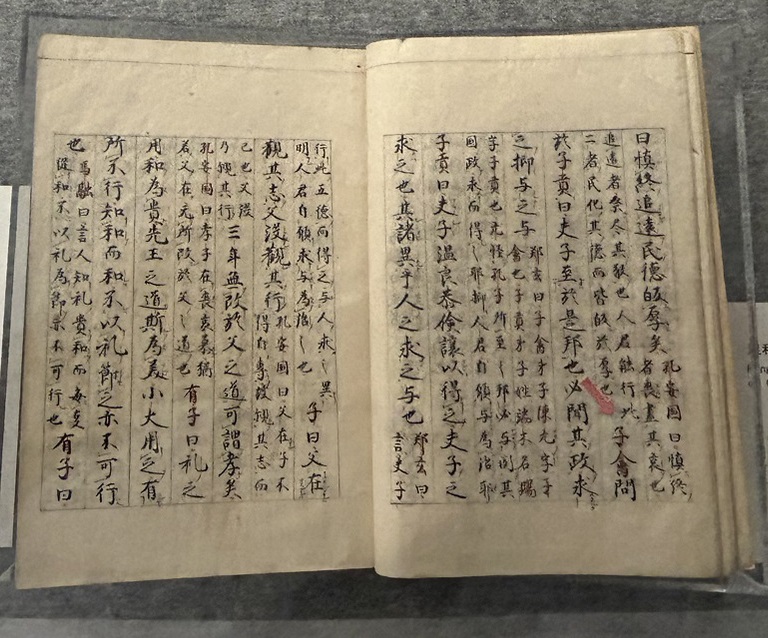 曰慎終追遠民德皈厚矣孔安國曰慎終
者喪盡其哀也
追遠者祭尽其敬也人君能行此
二者民化其德而皆皈於厚也子禽問
於子貢曰夫子至於是邦也必聞其政求
之抑与之与鄭玄曰子禽弟子陳亢字子
禽也子貢弟子姓端木名賜
字子貢也亢怪孔子所至之邦必与聞其
國政求而得之耶抑人君自願与為治耶
子貢曰夫子温良恭儉讓以得之夫子之
求之也其諸異乎人之求之与也鄭玄曰
言夫子
行此五德而得之与人求之異
明人君自願求与為治之也子曰父在
觀其志父沒觀其行孔安國曰父在子不
得自專故觀其志而
已也父沒
乃觀其行三年無改於父之道可謂孝矣
孔安國曰孝子在喪哀慕猶
若父在无所改於父之道也有子曰礼之
用和為貴先王之道斯為美小大用之有
所不行知和而和不以礼節之亦不可行
也馬融曰言人知礼貴和而每事
從和不以礼為節亦不可行也有子曰